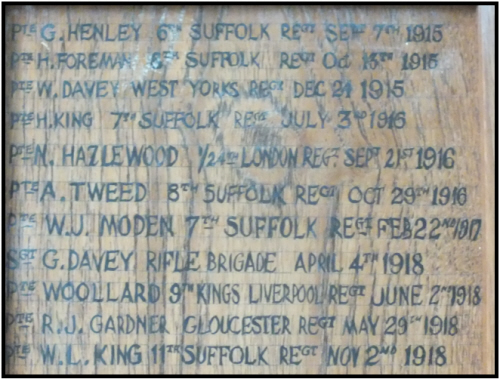 PTE G. HENLEY 6TH SUFFOLK REGT SEPT 7TH 1915
PTE H. FOREMAN 8TH SUFFOLK REGT Oct 13TH 1915
PTE W. DAVEY WEST YORKS REGT DEC 21 1915
PTE H. KING 7TH SUFFOLK REGT JULY 3RD 1916
PTE N. HAZLEWOOD 1/24TH LONDON REGT SEPT 21ST 1916
PTE A. TWEED 8TH SUFFOLK REGT OCT 29TH 1916
PTE W.J. MODEN 7TH SUFFOLK REGT FEB 22ND 1917
SGT G. DAVEY RIFLE BRIGADE APRIL 4TH 1918
PTE WOOLLARD 9TH KINGS LIVERPOOL REGT JUNE 2ND 1918
PTE R.J. GARDNER GLOUCESTER REGT MAY 29TH 1918
PTE W.L. KING 11TH SUFFOLK REGT NOV 2ND 1918